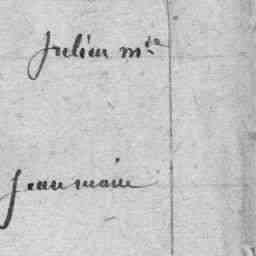 Julien m.te
Jean marie